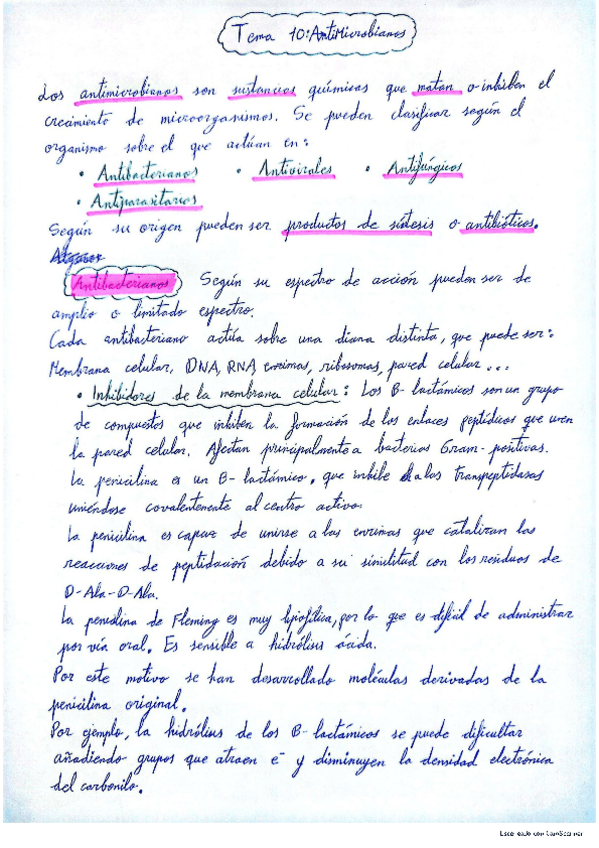 Tema 10: AntiMicrobianos
Los antimicrobianos son sustancias químicas que matan o inhiben el
crecimiento de microorganismos. Se pueden clasificar según el
organismo sobre el que actúan en:
• Antibacterianos • Antivirales • Antifúngicos
• Antiparasitarios
Según su origen pueden ser productos de síntesis o antibióticos.
Antibacterianos Según su espectro de acción pueden ser de
amplio o limitado espectro.
Cada antibacteriano actúa sobre una diana distinta, que puede ser:
Membrana celular, DNA, RNA, enzimas, ribosomas, pared celular...
• Inhibidores de la membrana celular: Los B-lactámicos son un grupo
de compuestos que inhiben la formación de los enlaces peptídicos que unen
la pared celular. Afectan principalmente a bacterias Gram-positivas.
La penicilina es un B-lactámico, que inhibe a las transpeptidasas
uniéndose covalentemente al centro activo.
La penicilina es capaz de unirse a las enzimas que catalizan las
reacciones de peptidación debido a su similitud con los residuos de
D-Ala-D-Ala.
La penicilina de Fleming es muy lipofílica, por lo que es difícil de administrar
por vía oral. Es sensible a hidrólisis ácida.
Por este motivo se han desarrollado moléculas derivadas de la
penicilina original.
Por ejemplo, la hidrólisis de los B-lactámicos se puede dificultar
añadiendo grupos que atraen e⁻ y disminuyen la densidad electrónica
del carbonilo.
Escaneado con CamScanner